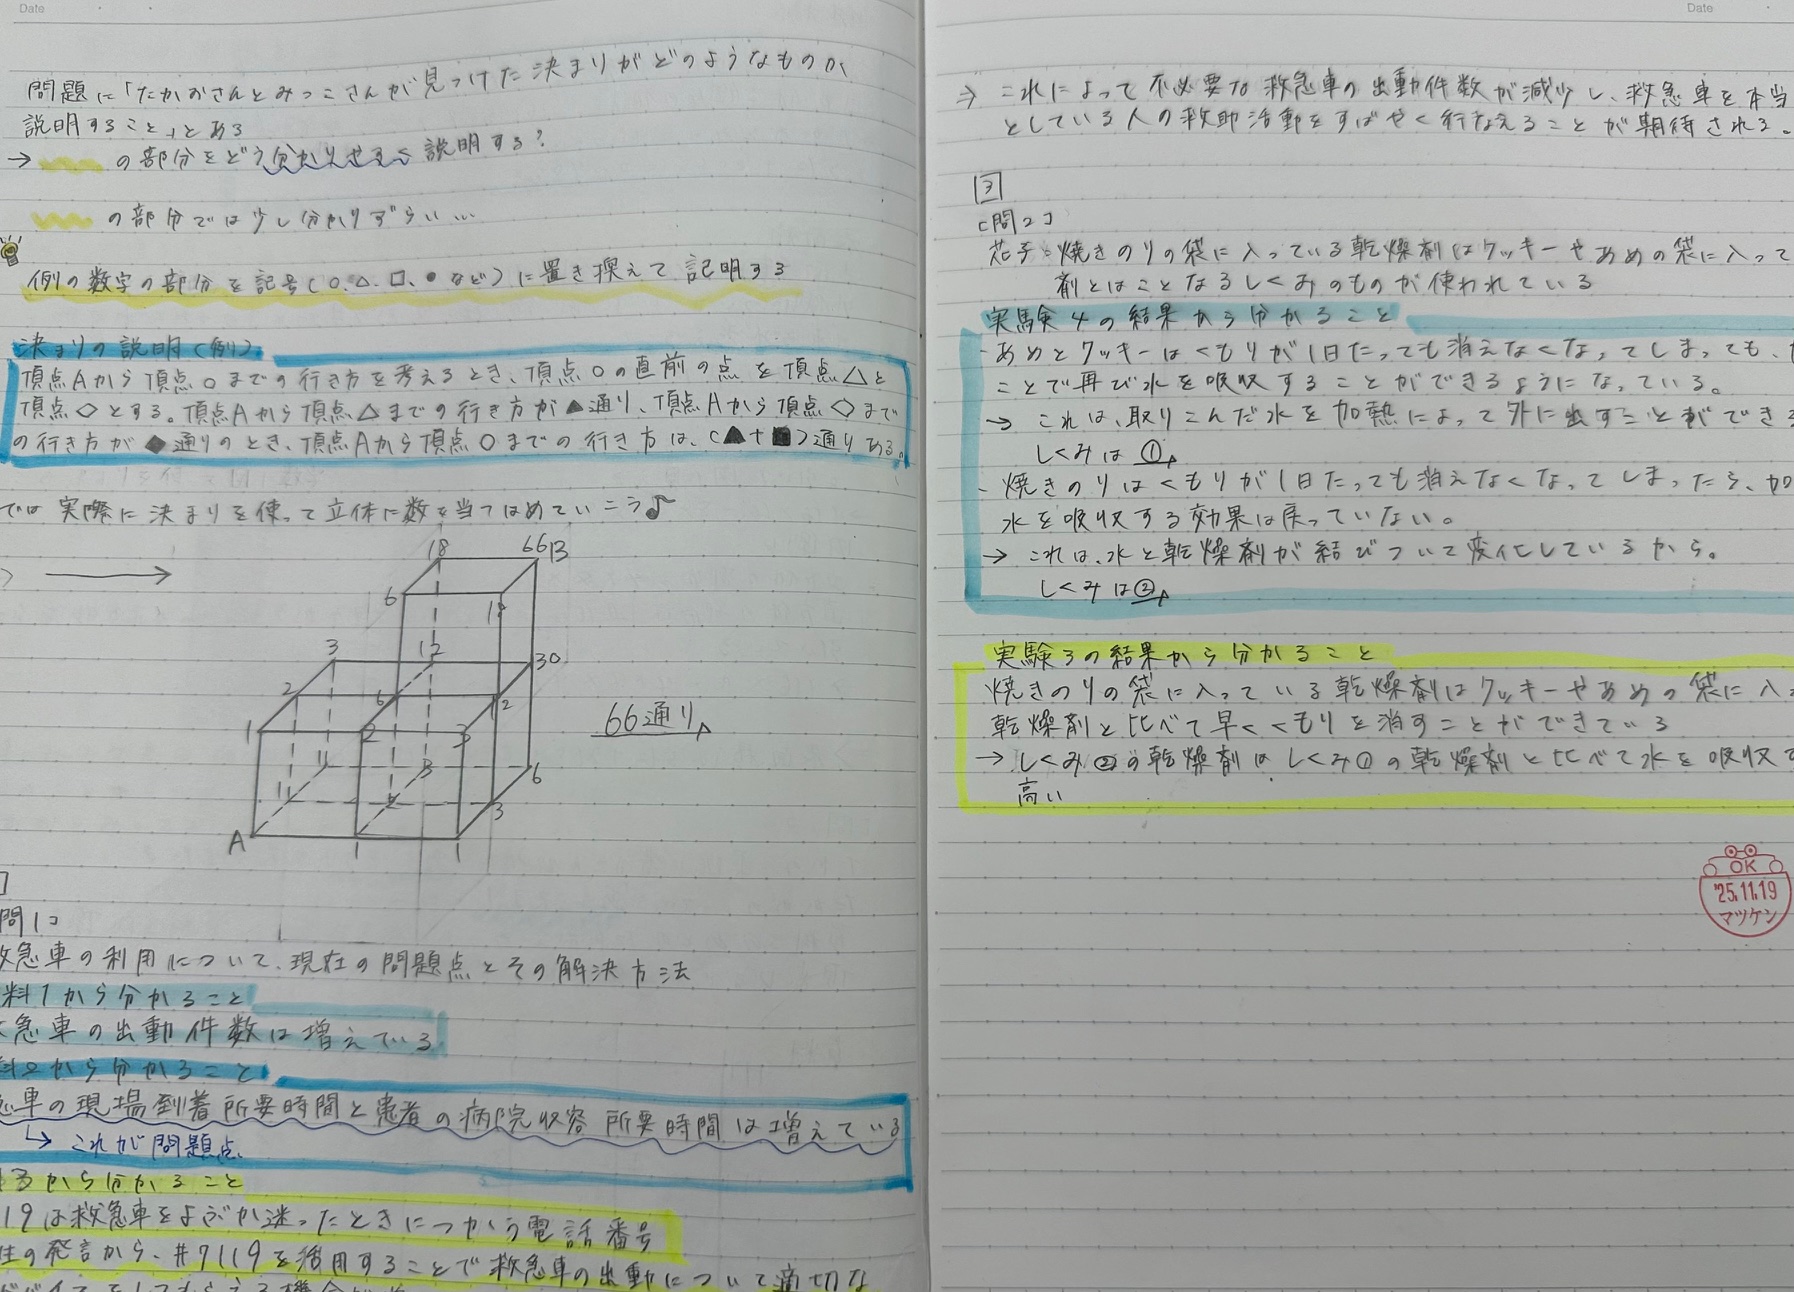 Date
問題に「たかおさんとみつこさんが見つけた決まりがどのようなものか
説明すること」とある
→ の部分をどう分かりやすく説明する?
の部分では少し分かりずらい…
例の数字の部分を記号(○、△、□、●など)に置き換えて記明する
決まりの説明(例)
頂点Aから頂点○までの行き方を考えるとき、頂点○の直前の点を頂点△と
頂点◇とする。頂点Aから頂点△までの行き方が▲通り、頂点Aから頂点◇まで
の行き方が◆通りのとき、頂点Aから頂点○までの行き方は、(▲+■)通りある。
では実際に決まりを使って立体に数を当てはめていこう♪
→
18 66B
6 18
3 12 30
2 6 12
1 2 3
1 3 6
1 2 3
A 1 1
66通り
問1]
救急車の利用について、現在の問題点とその解決方法
料1から分かること
急車の出動件数は増えている
料2から分かること
急車の現場到着所要時間と患者の病院収容所要時間は増えている
↳ これが問題点
3から分かること
19は救急車をよぶか迷ったときにつかう電話番号
の発言から、#7119を活用することで救急車の出動について適切な
Date
⇒ これによって不必要な救急車の出動件数が減少し、救急車を本当
としている人の救助活動をすばやく行なえることが期待される。
3
[問2]
花子:焼きのりの袋に入っている乾燥剤はクッキーやあめの袋に入って
剤とはことなるしくみのものが使われている
実験4の結果から分かること
・あめとクッキーはくもりが1日たっても消えなくなってしまっても、
ことで再び水を吸収することができるようになっている。
→ これは、取りこんだ水を加熱によって外に出すことができる
しくみは①
・焼きのりはくもりが1日たっても消えなくなってしまったら、加
水を吸収する効果は戻っていない。
→ これは、水と乾燥剤が結びついて変化しているから。
しくみは②
実験3の結果から分かること
焼きのりの袋に入っている乾燥剤はクッキーやあめの袋に入
乾燥剤と比べて早くくもりを消すことができている
→ しくみ②の乾燥剤はしくみ①の乾燥剤と比べて水を吸収
高い
OK
'25.11.19
マツケン